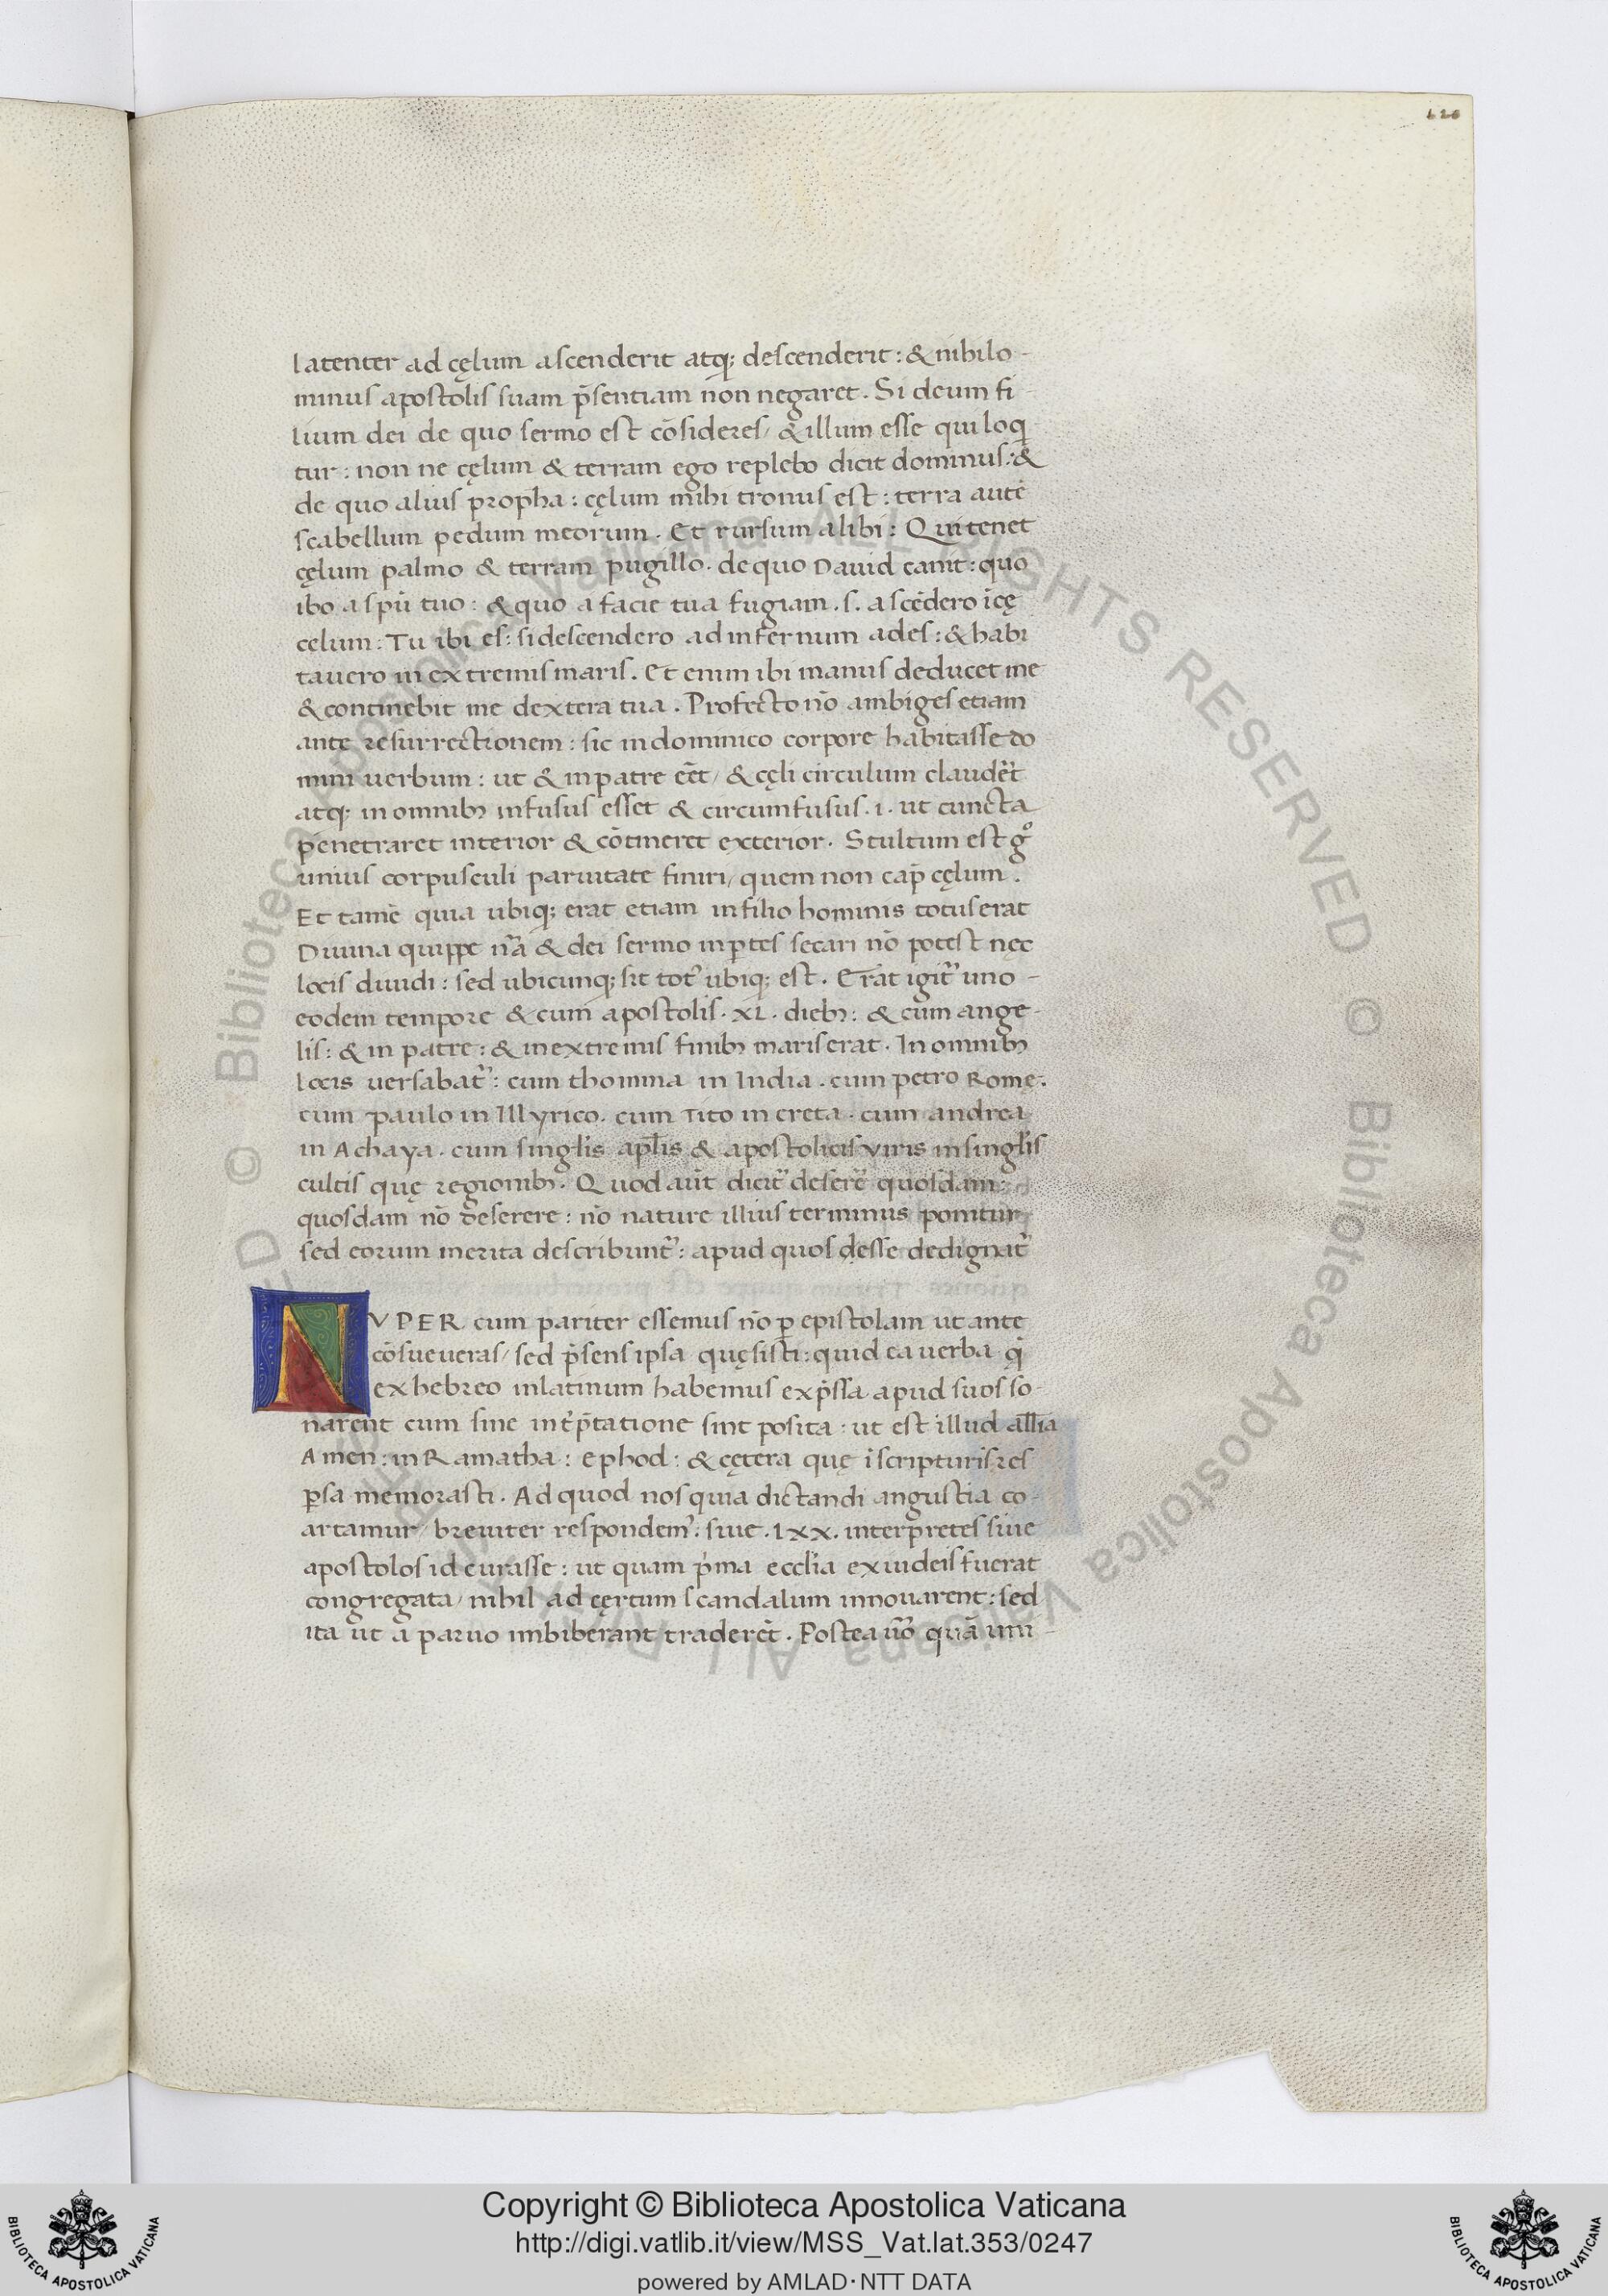 120
latenter ad cęlum ascenderit atq; descenderit: & nihilo-
minus apostolis suam p̄sentiam non negaret. Si deum fi-
lium dei de quo sermo est cōsideres/ & illum esse qui loq̇
tur: non ne cęlum & terram ego replebo dicit dominus: &
de quo alius propħa: cęlum mihi tronus est: terra autē
scabellum pedum meorum. Et rursum alibi: Qui tenet
cęlum palmo & terram pugillo. de quo Dauid canit: quo
ibo a spū tuo: & quo a facie tua fugiam. s. ascēdero ī cę
celum: Tu ibi es: si descendero ad infernum ades: & habi
tauero in extremis maris. Et enim ibi manus deducet me
& continebit me dextera tua. Profecto nō ambiges etiam
ante resurrectionem: sic in dominico corpore habitasse do
mini uerbum: ut & in patre eēt/ & cęli circulum claudēt
atq; in omnibꝫ infusus esset & circumfusus. i. ut cuncta
penetraret interior & cōtineret exterior. Stultum est gͦ
unius corpusculi paruitate finiri/ quem non cap̄ cęlum.
Et tamē quia ubiq; erat etiam in filio hominis totus erat
Diuina quippe nr̄a & dei sermo in ꝑtes secari nō potest nęc
locis diuidi: sed ubicunq; sit tot᾽ ubiq; est. Erat igit᾽ uno-
eodem tempore & cum apostolis. XL. diebꝫ: & cum ange-
lis: & in patre: & in extremis finibꝫ maris erat. In omnibꝫ
locis uersabat᾽: cum thomma in India. cum petro Romę:
cum paulo in Illyrico. cum Tito in creta. cum andrea
in Achaya. cum singlis apłis & apostolicis viris in singlis
cultis quę regionibꝫ. Quod aūt dicit᾽ deser̄e quosdam:
quosdam nō deserere: nō nature illius terminus ponitur
sed eorum merita describunt᾽: apud quos dęsse dedignat᾽
NVPER cum pariter essemus nō ꝑ epistolam ut ante
cōsueueras/ sed p̄sens ipsa quęsisti: quid ea uerba q̇
ex hebreo in latinum habemus exp̄ssa apud suos so-
narent cum sine int᾽p̄tatione sint posita: ut est illud allīa
Amen: in Ramatha: ephod: & cętera quę ī scripturis res
ꝑsa memorasti. Ad quod nos quia dictandi angustia co-
artamur/ breuiter respondem᾽. siue. lxx. interpretes siue
apostolos id curasse: ut quam ṗma ecclīa ex iudeis fuerat
congregata/ nihil ad cęrtum scandalum innouarent: sed
ita ut a paruo imbiberant traderēt. Postea u̅o quā uni-
Copyright © Biblioteca Apostolica Vaticana
http://digi.vatlib.it/view/MSS_Vat.lat.353/0247
powered by AMLAD·NTT DATA
BIBLIOTECA APOSTOLICA VATICANA
BIBLIOTECA APOSTOLICA VATICANA
© Biblioteca Apostolica Vaticana ALL RIGHTS RESERVED © Biblioteca Apostolica Vaticana ALL RIGHTS RESERVED